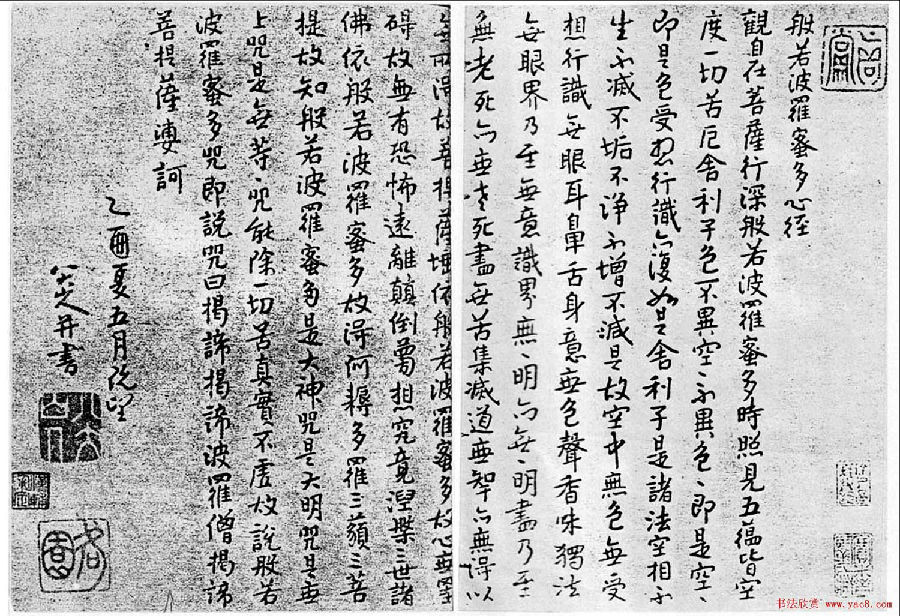 般若波羅蜜多心經
觀自在菩薩行深般若波羅蜜多時照見五蘊皆空
度一切苦厄舍利子色不異空不異色、即是空、
即是色受想行識亦復如是舍利子是諸法空相不
生不滅不垢不淨不增不減是故空中無色無受
想行識無眼耳鼻舌身意無色聲香味觸法
無眼界乃至無意識界無、明亦無明盡乃至
無老死亦無老死盡無苦集滅道無智亦無得以
無所得故菩提薩埵依般若波羅蜜多故心無罣
礙故無有恐怖遠離顛倒夢想究竟涅槃三世諸
佛依般若波羅蜜多故得阿耨多羅三藐三菩
提故知般若波羅蜜多是大神咒是大明咒是無
上咒是無等、咒能除一切苦真實不虛故說般若
波羅蜜多咒即說咒曰揭諦揭諦波羅僧揭諦
菩提薩婆訶
乙酉夏五月既望
八大山人并書
书法欣赏 www.yac8.com